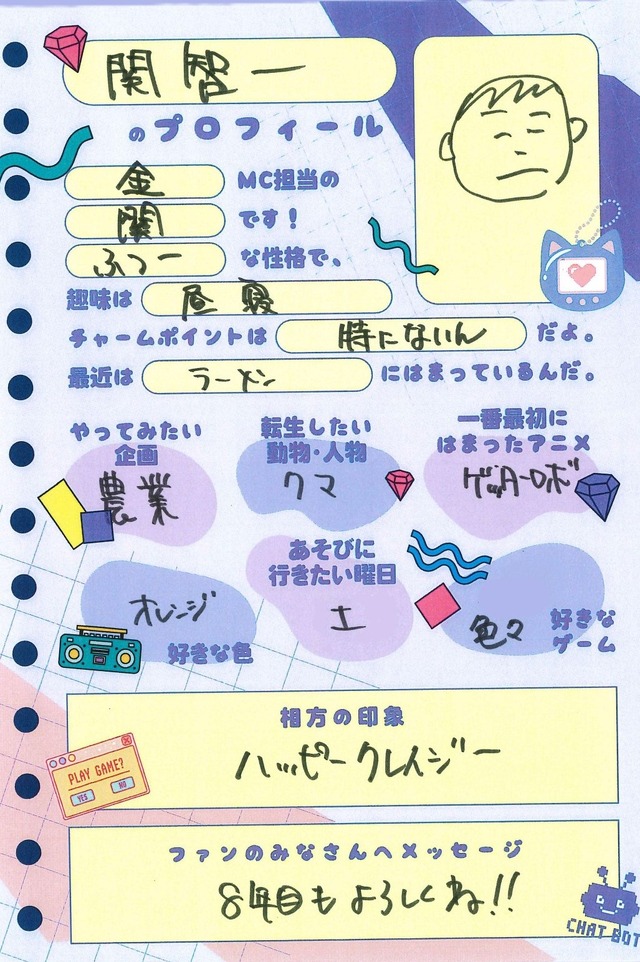 関智一
のプロフィール
金 MC担当の
関 です！
ふつー な性格で、
趣味は 昼寝
チャームポイントは 特にないん だよ。
最近は ラーメン にはまっているんだ。
やってみたい
企画
農業
転生したい
動物・人物
クマ
一番最初に
はまったアニメ
ゲッターロボ
オレンジ
好きな色
あそびに
行きたい曜日
土
色々
好きな
ゲーム
相方の印象
ハッピークレイジー
PLAY GAME?
YES
NO
ファンのみなさんへメッセージ
8年目もよろしくね!!
CHAT BOT